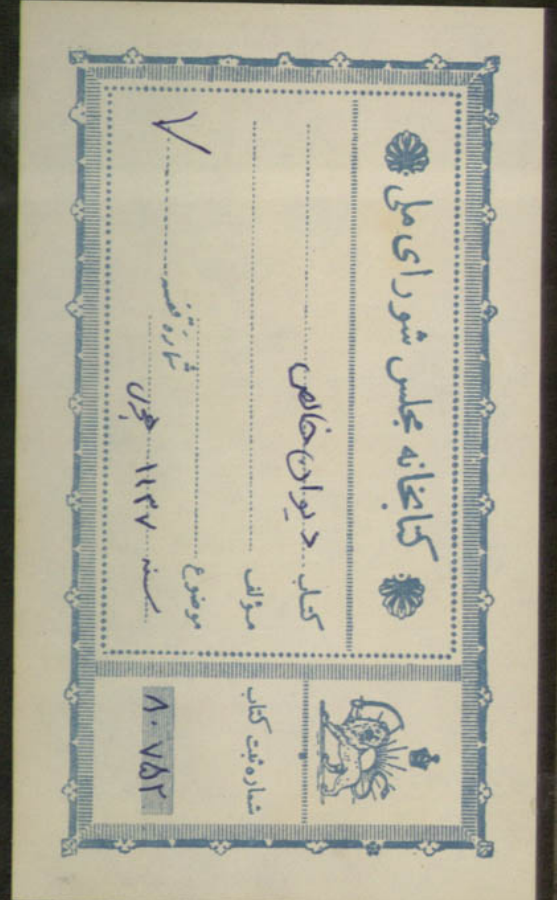 کتابخانه مجلس شورای ملی
کتاب دیوان خالص
مؤلف
موضوع
شماره قفسه ۷
سنه ۱۱۳۷ هجری
شماره ثبت کتاب
۸۰۷۵۲